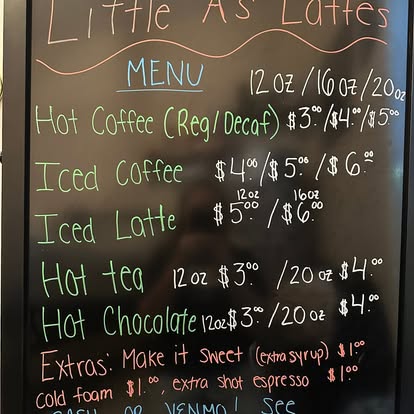 Little As' Lattes
MENU
12 oz / 16 oz / 20 oz
Hot Coffee (Reg/Decaf) $3.00/$4.00/$5.00
Iced Coffee $4.00/$5.00/$6.00
12oz 16oz
Iced Latte $5.00/$6.00
Hot tea 12 oz $3.00 /20 oz $4.00
Hot Chocolate 12oz $3.00/20 oz $4.00
Extras: Make it Sweet (extra syrup) $1.00
cold foam $1.00, extra shot espresso $1.00
CASH OR VENMO! See